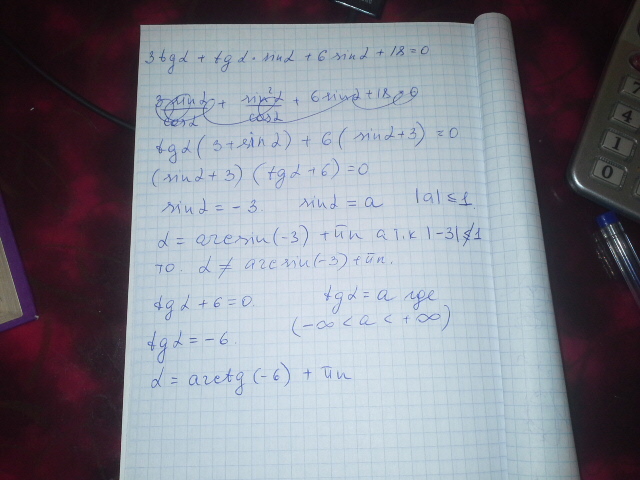 3tgα + tgα · sinα + 6 sinα + 18 = 0
3 sinα/cosα + sin²α/cosα + 6 sinα + 18 = 0
tgα (3 + sinα) + 6 (sinα + 3) = 0
(sinα + 3) (tgα + 6) = 0
sinα = -3. sinα = a |a| ≤ 1
α = arcsin(-3) + πn а т.к |-3| ≰ 1
то. α ≠ arcsin(-3) + πn.
tgα + 6 = 0. tgα = a где
(-∞ < a < +∞)
tgα = -6.
α = arctg(-6) + πn
7
4
1
0